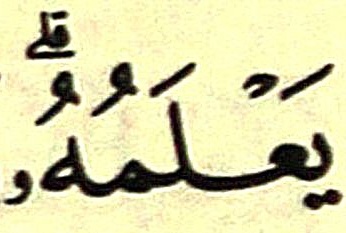 يَعْلَمُهُۥۗ